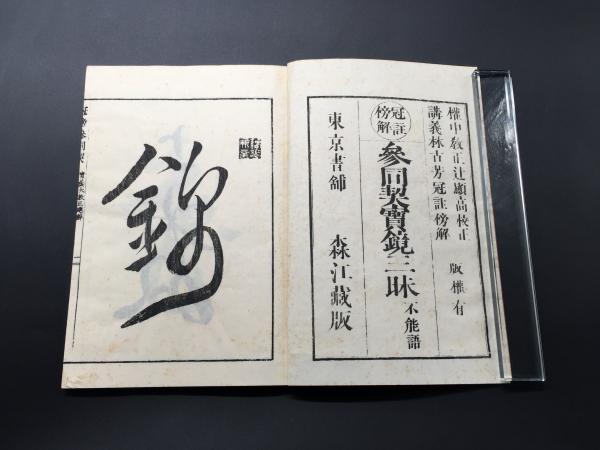 權中敎正辻顯高校正
講義林古芳冠註榜解
版權有
冠註
榜解
參同契寶鏡三昧不能語
東京書舗
森江藏版
錦